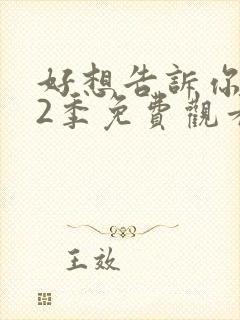 好想告訴你
2季免費觀看
王效